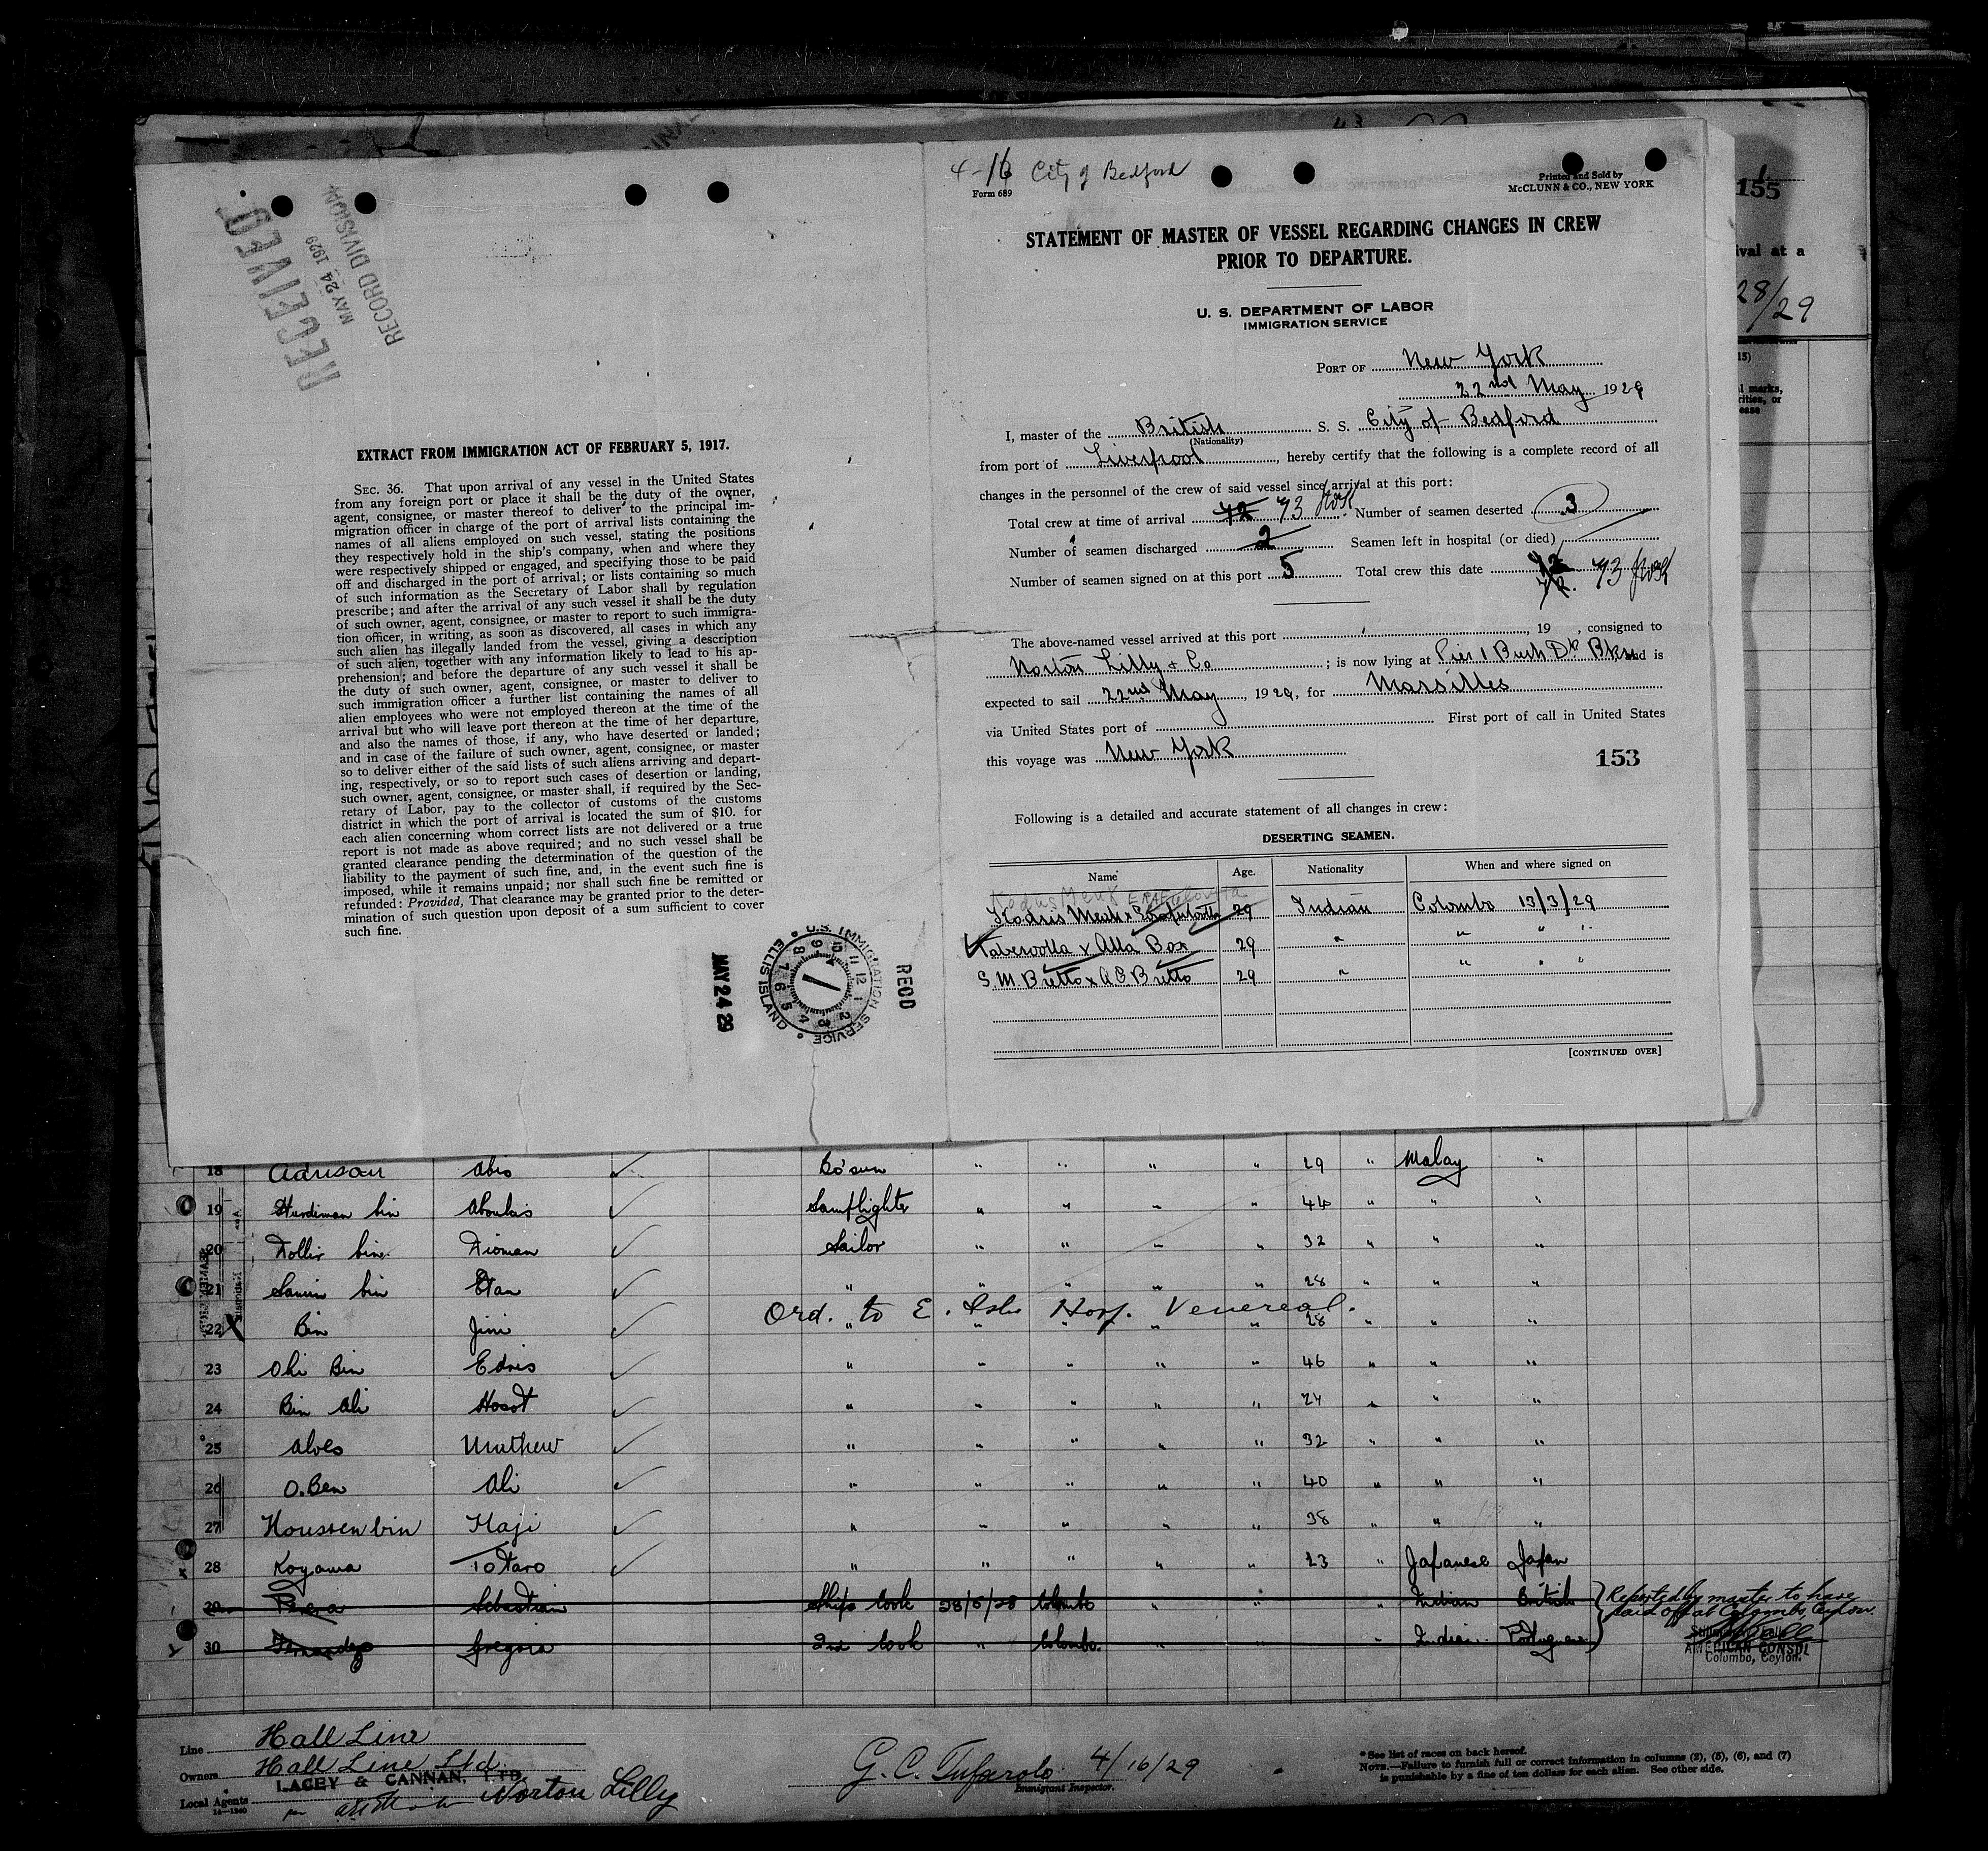 RECEIVED
MAY 24 1929
RECORD DIVISION
EXTRACT FROM IMMIGRATION ACT OF FEBRUARY 5, 1917.
SEC. 36. That upon arrival of any vessel in the United States
from any foreign port or place it shall be the duty of the owner,
agent, consignee, or master thereof to deliver to the principal im-
migration officer in charge of the port of arrival lists containing the
names of all aliens employed on such vessel, stating the positions
they respectively hold in the ship's company, when and where they
were respectively shipped or engaged, and specifying those to be paid
off and discharged in the port of arrival; or lists containing so much
of such information as the Secretary of Labor shall by regulation
prescribe; and after the arrival of any such vessel it shall be the duty
of such owner, agent, consignee, or master to report to such immigra-
tion officer, in writing, as soon as discovered, all cases in which any
such alien has illegally landed from the vessel, giving a description
of such alien, together with any information likely to lead to his ap-
prehension; and before the departure of any such vessel it shall be
the duty of such owner, agent, consignee, or master to deliver to
such immigration officer a further list containing the names of all
alien employees who were not employed thereon at the time of the
arrival but who will leave port thereon at the time of her departure,
and also the names of those, if any, who have deserted or landed;
and in case of the failure of such owner, agent, consignee, or master
so to deliver either of the said lists of such aliens arriving and depart-
ing, respectively, or so to report such cases of desertion or landing,
such owner, agent, consignee, or master shall, if required by the Sec-
retary of Labor, pay to the collector of customs of the customs
district in which the port of arrival is located the sum of $10. for
each alien concerning whom correct lists are not delivered or a true
report is not made as above required; and no such vessel shall be
granted clearance pending the determination of the question of the
liability to the payment of such fine, and, in the event such fine is
imposed, while it remains unpaid; nor shall such fine be remitted or
refunded: Provided, That clearance may be granted prior to the deter-
mination of such question upon deposit of a sum sufficient to cover
such fine.
MAY 24 29
U.S. IMMIGRATION SERVICE ELLIS ISLAND
RECD
4-16 City of Bedford
Form 689
Printed and Sold by
McCLUNN & CO., NEW YORK
STATEMENT OF MASTER OF VESSEL REGARDING CHANGES IN CREW
PRIOR TO DEPARTURE.
U. S. DEPARTMENT OF LABOR
IMMIGRATION SERVICE
PORT OF New York
22nd May 1929
I, master of the British S. S. City of Bedford
(Nationality)
from port of Liverpool, hereby certify that the following is a complete record of all
changes in the personnel of the crew of said vessel since arrival at this port:
Total crew at time of arrival 72 73 Number of seamen deserted 3
Number of seamen discharged 2 Seamen left in hospital (or died)
Number of seamen signed on at this port 5 Total crew this date 72 72. 73
The above-named vessel arrived at this port , 19 , consigned to
Norton Lilly & Co ; is now lying at Pier 1 Bush Dk Bkn and is
expected to sail 22nd May, 1929, for Marsilles
via United States port of First port of call in United States
this voyage was New York
153
Following is a detailed and accurate statement of all changes in crew:
DESERTING SEAMEN.
Name Age. Nationality When and where signed on
29 Indian Colombo 13/3/29
Taberoolla x Alla Box 29 " " " "
S. M. Britto x A B. Britto 29 " " " "
[CONTINUED OVER]
155
ival at a
28/29
15)
l marks,
rities, or
ease
18 Adrisan Abis Bo'sun " " " " 29 " Malay "
19 Hurdiman bin Aboubis Lamplighter " " " " 44 " " "
20 Dollir bin Dioman Sailor " " " " 32 " " "
21 Samin bin Etan " " " " " 28 " " "
Ord. to E. Isl. Hosp. Venereal.
22 Bin Jini " " " " " 28 " " "
23 Ohi Bin Edris " " " " " 46 " " "
24 Bin Ali Hosot " " " " " 24 " " "
25 Alves Mathew " " " " " 32 " " "
26 O. Ben Ali " " " " " 40 " " "
27 Houssen bin Haji " " " " " 38 " " "
28 Koyama Totaro " " " " " 23 " Japanese Japan
29 Perera Sebastian Ships Cook 28/5/28 Colombo " " " Indian British
30 Fernandez Gregoria 2nd Cook " Colombo " " Indian Portuguese
Reported by master to have
paid off at Colombo, Ceylon.
AMERICAN CONSUL
Colombo, Ceylon.
Line Hall Line
Owners Hall Line Ltd.
LACEY & CANNAN, LTD.
Local Agents Norton Lilly
14—1240
G. C. Tufarolo 4/16/29
Immigrant Inspector.
*See list of races on back hereof.
NOTE.—Failure to furnish full or correct information in columns (2), (5), (6), and (7)
is punishable by a fine of ten dollars for each alien. See other side.